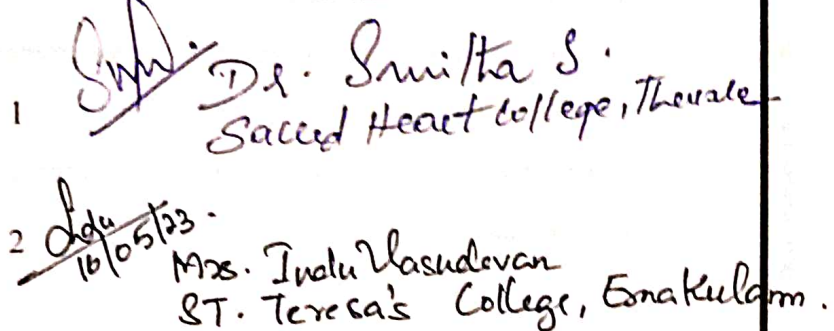 1 Dr. Smitha S.
Sacred Heart College, Thevara
2 Indu
16/05/23.
Mrs. Indu Vasudevan
ST. Teresa's College, Ernakulam.